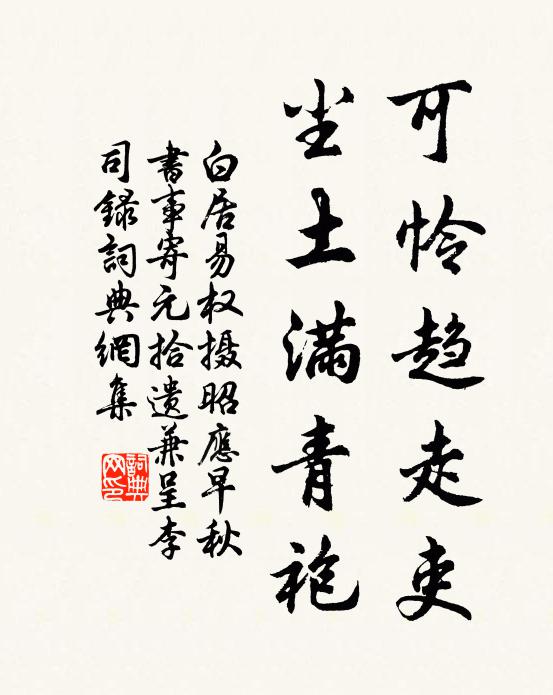 可怜趋走吏
尘土满青袍
白居易权摄昭應早秋
書事寄元拾遗兼呈李
司録詞典網集
詞典
网印